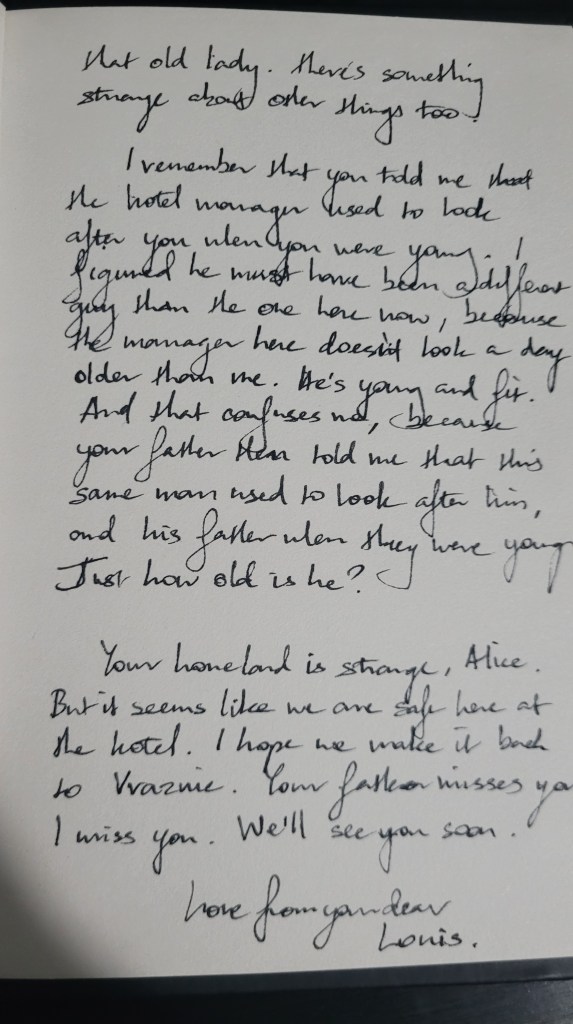 that old lady. There's something
strange about other things too.
I remember that you told me that
the hotel manager used to look
after you when you were young. I
figured he must have been a different
guy than the one here now, because
the manager here doesn't look a day
older than me. He's young and fit.
And that confuses me, because
your father then told me that this
same man used to look after him,
and his father when they were young
Just how old is he?
Your homeland is strange, Alice.
But it seems like we are safe here at
the hotel. I hope we make it back
to Vraznic. Your father misses yo
I miss you. We'll see you soon.
Love from your dear
Louis.